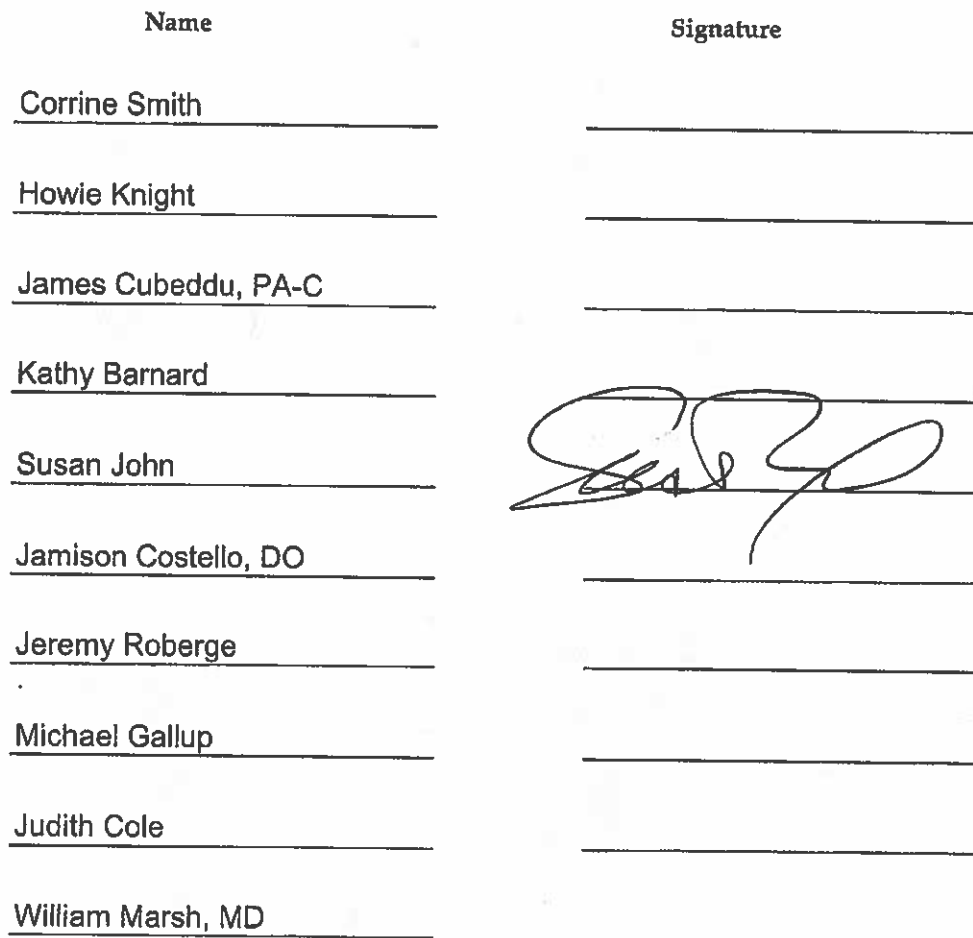 Name Signature
Corrine Smith
Howie Knight
James Cubeddu, PA-C
Kathy Barnard
Susan John
Jamison Costello, DO
Jeremy Roberge
Michael Gallup
Judith Cole
William Marsh, MD